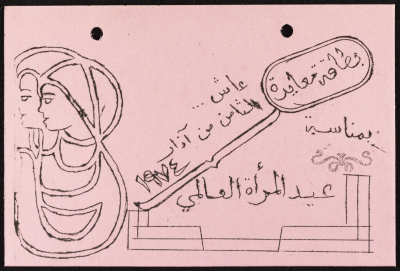 بطاقة معايدة
بمناسبة
عيد المرأة العالمي
عاش ...
الثامن من آذار
١٩٧٤